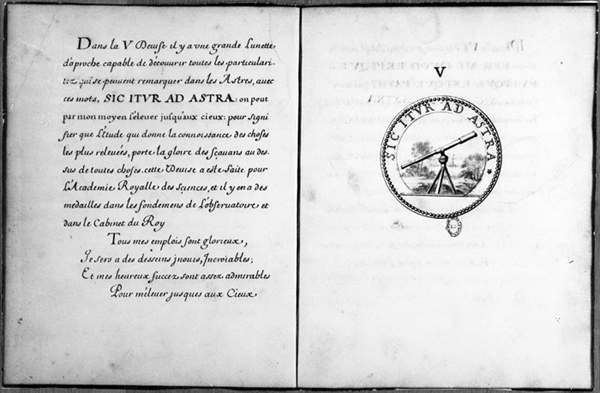 Dans la V Deuise il y a vne grande Lunette
d'aproche capable de découurir toutes les particulari-
tez qui se peuuent remarquer dans les Astres, auec
ces mots, SIC ITVR AD ASTRA: on peut
par mon moyen s'éleuer jusqu'aux cieux: pour signi
fier que l'Étude qui donne la connoissance des choses
les plus releuées, porte la gloire des sçauans au des-
sus de toutes choses. cette Deuise a esté faite pour
L'Academie Royalle des Sciences, et il y en a des
médailles dans les fondemens de L'obseruatoire et
dans le Cabinet du Roy
Tous mes emplois sont glorieux,
Je sers a des desseins jnouis, Incroiables;
Et mes heureux succez sont assez admirables
Pour m'éleuer jusques aux Cieux.
V
SIC ITVR AD ASTRA